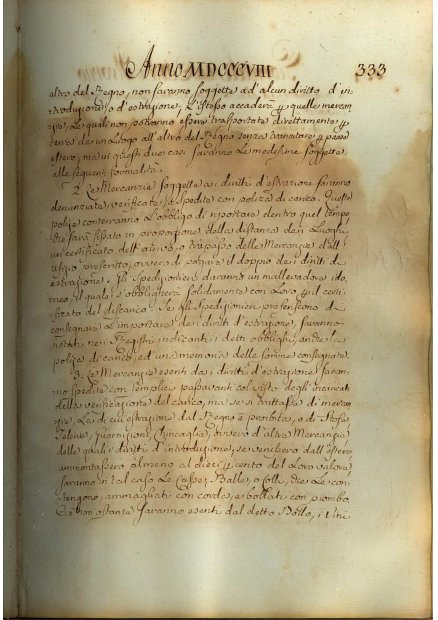 Anno MDCCCVIII 333
altro del Regno, non saranno soggette ad alcun diritto d'in
troduzione, o d'estrazione; L'istesso accaderà quelle mercan
zie, Le quali non potranno essere trasportate direttamente
terra da un Luogo all'altro del Regno senza transitare paese
estero, ma in questi due casi saranno Le medesime soggette
alle seguenti formalità.
2. Le Mercanzie soggette ai diritti d'estrazione saranno
denunziate, verificate, e spedite con polizza di carico. Queste
polize conterranno L'obbligo di riportare dentro quel tempo,
che sarà fissato in proporzione della distanza dei Luoghi
un certificato dell'arrivo, o trapasso delle Mercanzie dall'
ufizio prescritto, ovvero di pagare il doppio dei diritti di
estrazione. Gli Spedizionieri daranno un mallevadore ido
neo, il quale s'obbligherà solidamente con Loro il certi
ficato del discarico. Se gli Spedizionieri preferiscono di
consegnare L'importare dei diritti d'estrazione, saranno
notati nei Registri indicanti i detti obblighi, anche la
polize di carico, ed una memoria delle somme consegnate.
3. Le Mercanzie esenti da i diritti d'estrazione saran
no spedite con semplici passavanti col visto degl'incaricati
della verificazione del carico, ma se si trattasse di mercan
zie, La di cui estrazione dal Regno è proibita, o di Stoffe
Telerie, Guarnizioni, Chincaglia, ovvero d'altre Mercanzie
delle quali i diritti d'introduzione, se venissero dall'estero,
ammontassero almeno al dieci cento del Loro valore
saranno in tal caso Le Casse, Balle, o Colli, che Le con
tengono, ammagliati con corde, e bollati con piombo.
Ciò non ostante saranno esenti dal detto Bollo, i Vini